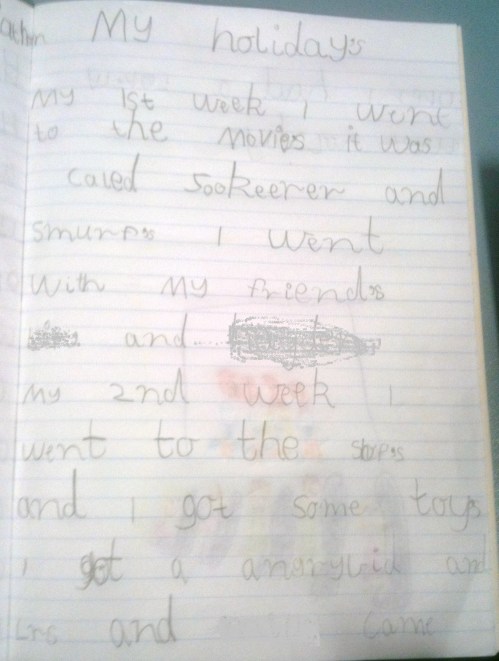 My holidays
My 1st week I went
to the movies it was
caled sookeerer and
smurf's I went
with my friends
and
My 2nd week I
went to the
and I got some toys
I got a and
and came